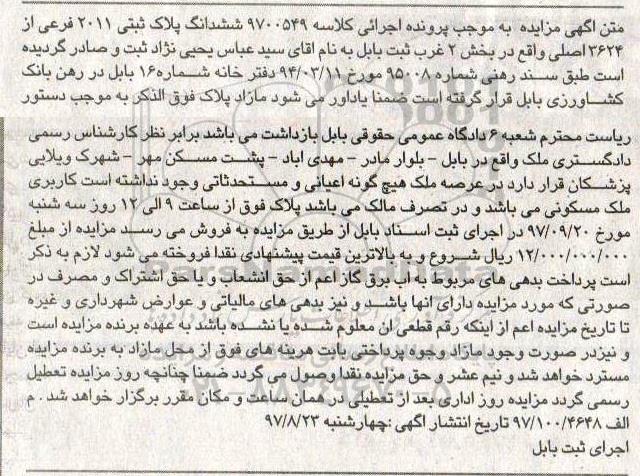 متن آگهی مزایده به موجب پرونده اجرائی کلاسه ۹۷۰۰۵۴۹ ششدانگ پلاک ثبتی ۲۰۱۱ فرعی از
۳۶۲۴ اصلی واقع در بخش ۲ غرب ثبت بابل به نام آقای سید عباس یحیی نژاد ثبت و صادر گردیده
است طبق سند رهنی شماره ۹۵۰۰۸ مورخ ۹۴/۰۳/۱۱ دفتر خانه شماره۱۶ بابل در رهن بانک
کشاورزی بابل قرار گرفته است ضمنا یاداور می شود مازاد پلاک فوق الذکر به موجب دستور
ریاست محترم شعبه ۶ دادگاه عمومی حقوقی بابل بازداشت می باشد برابر نظر کارشناس رسمی
دادگستری ملک واقع در بابل - بلوار مادر - مهدی اباد - پشت مسکن مهر - شهرک ویلایی
پزشکان قرار دارد در عرصه ملک هیچ گونه اعیانی و مستحدثاتی وجود نداشته است کاربری
ملک مسکونی می باشد و در تصرف مالک می باشد پلاک فوق از ساعت ۹ الی ۱۲ روز سه شنبه
مورخ ۹۷/۰۹/۲۰ در اجرای ثبت اسناد بابل از طریق مزایده به فروش می رسد مزایده از مبلغ
۱۲/۰۰۰/۰۰۰/۰۰۰ ریال شروع و به بالاترین قیمت پیشنهادی نقدا فروخته می شود لازم به ذکر
است پرداخت بدهی های مربوط به اب برق گاز اعم از حق انشعاب و یا حق اشتراک و مصرف در
صورتی که مورد مزایده دارای انها باشد و نیز بدهی های مالیاتی و عوارض شهرداری و غیره
تا تاریخ مزایده اعم از اینکه رقم قطعی ان معلوم شده یا نشده باشد به عهده برنده مزایده است
و نیزدر صورت وجود مازاد وجوه پرداختی بابت هرینه های فوق از محل مازاد به برنده مزایده
مسترد خواهد شد و نیم عشر و حق مزایده نقدا وصول می گردد ضمنا چنانچه روز مزایده تعطیل
رسمی گردد مزایده روز اداری بعد از تعطیلی در همان ساعت و مکان مقرر برگزار خواهد شد . م
الف ۹۷/۱۰۰/۴۶۴۸ تاریخ انتشار اگهی :چهارشنبه ۹۷/۸/۲۳
اجرای ثبت بابل